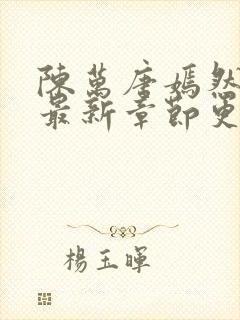 陳萬唐嫣然
最新章節更
楊玉暉